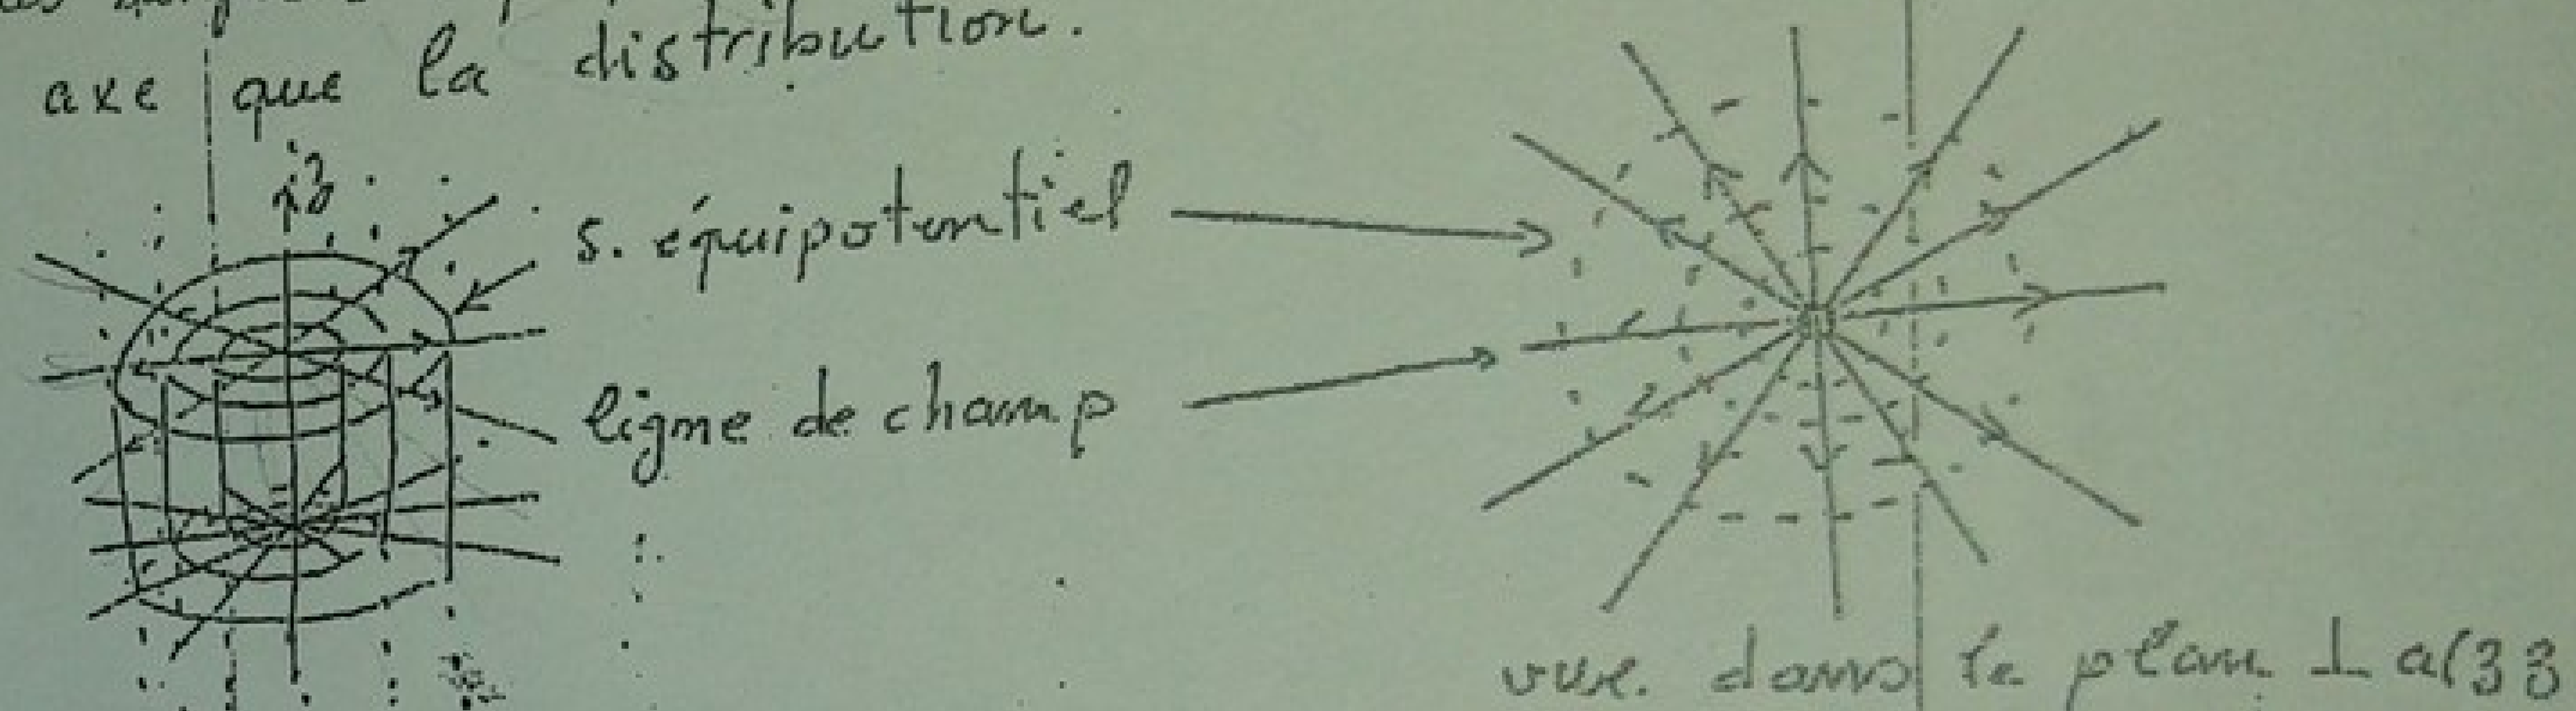 axe que la distribution.
z
s. équipotentiel
ligne de champ
vue dans le plan ⊥ a(z z